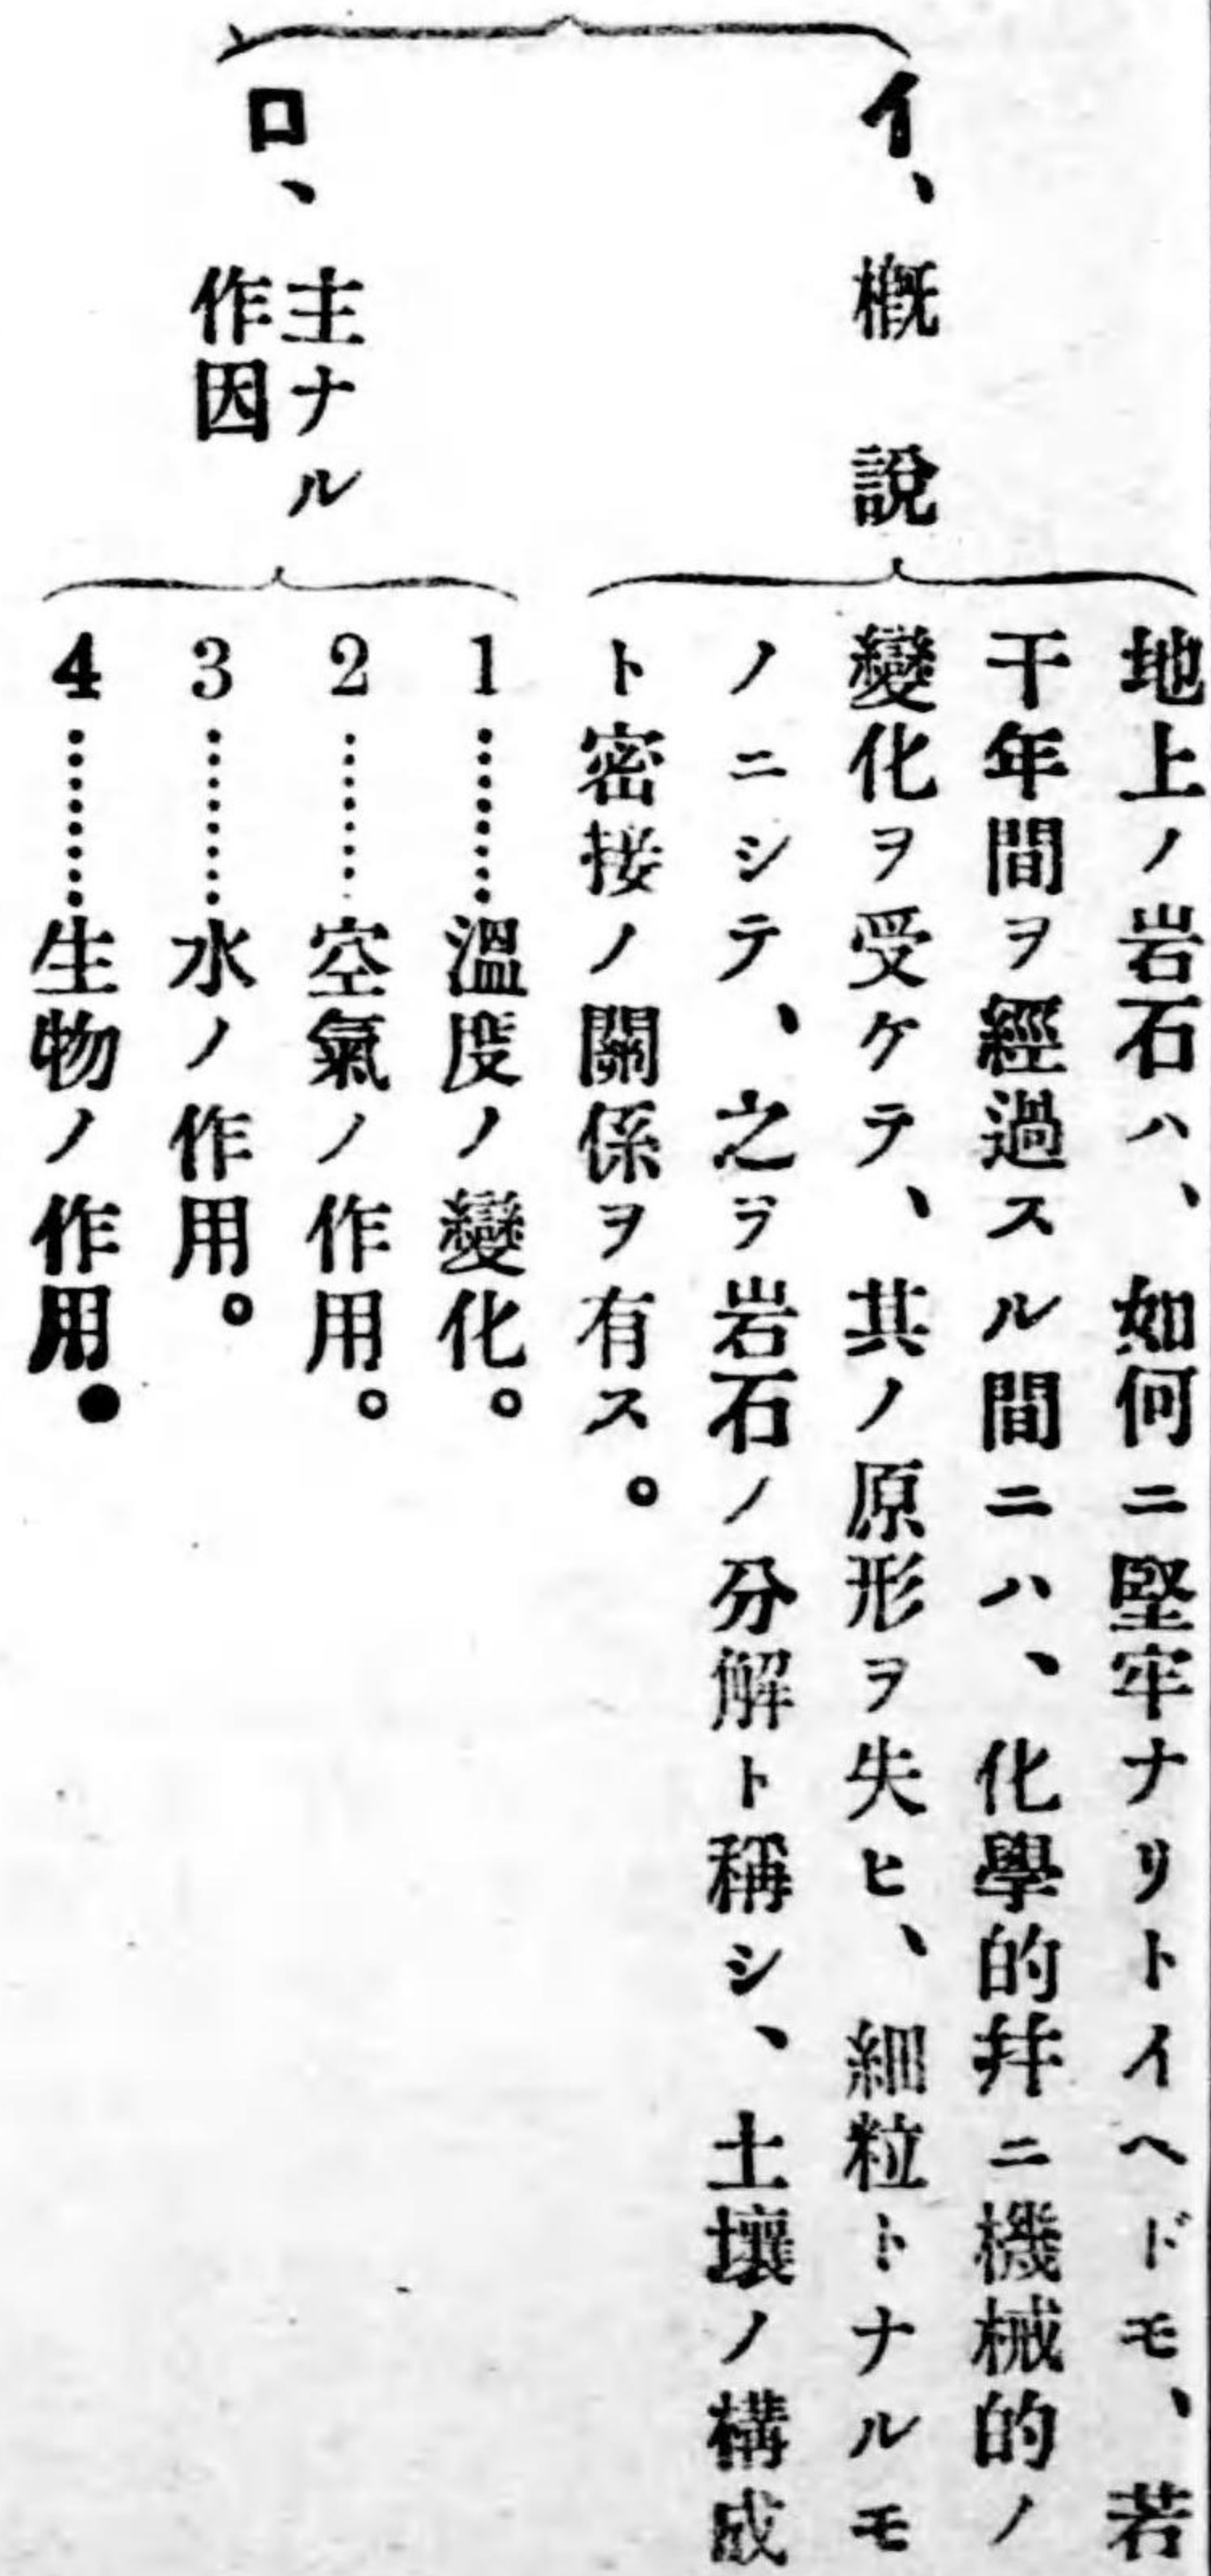 イ、概說
地上ノ岩石ハ、如何ニ堅牢ナリトイヘドモ、若
干年間ヲ經過スル間ニハ、化學的幷ニ機械的ノ
變化ヲ受ケテ、其ノ原形ヲ失ヒ、細粒トナルモ
ノニシテ、之ヲ岩石ノ分解ト稱シ、土壤ノ構成
ト密接ノ關係ヲ有ス。
ロ、主ナル
作因
1………溫度ノ變化。
2………空氣ノ作用。
3………水ノ作用。
4………生物ノ作用。